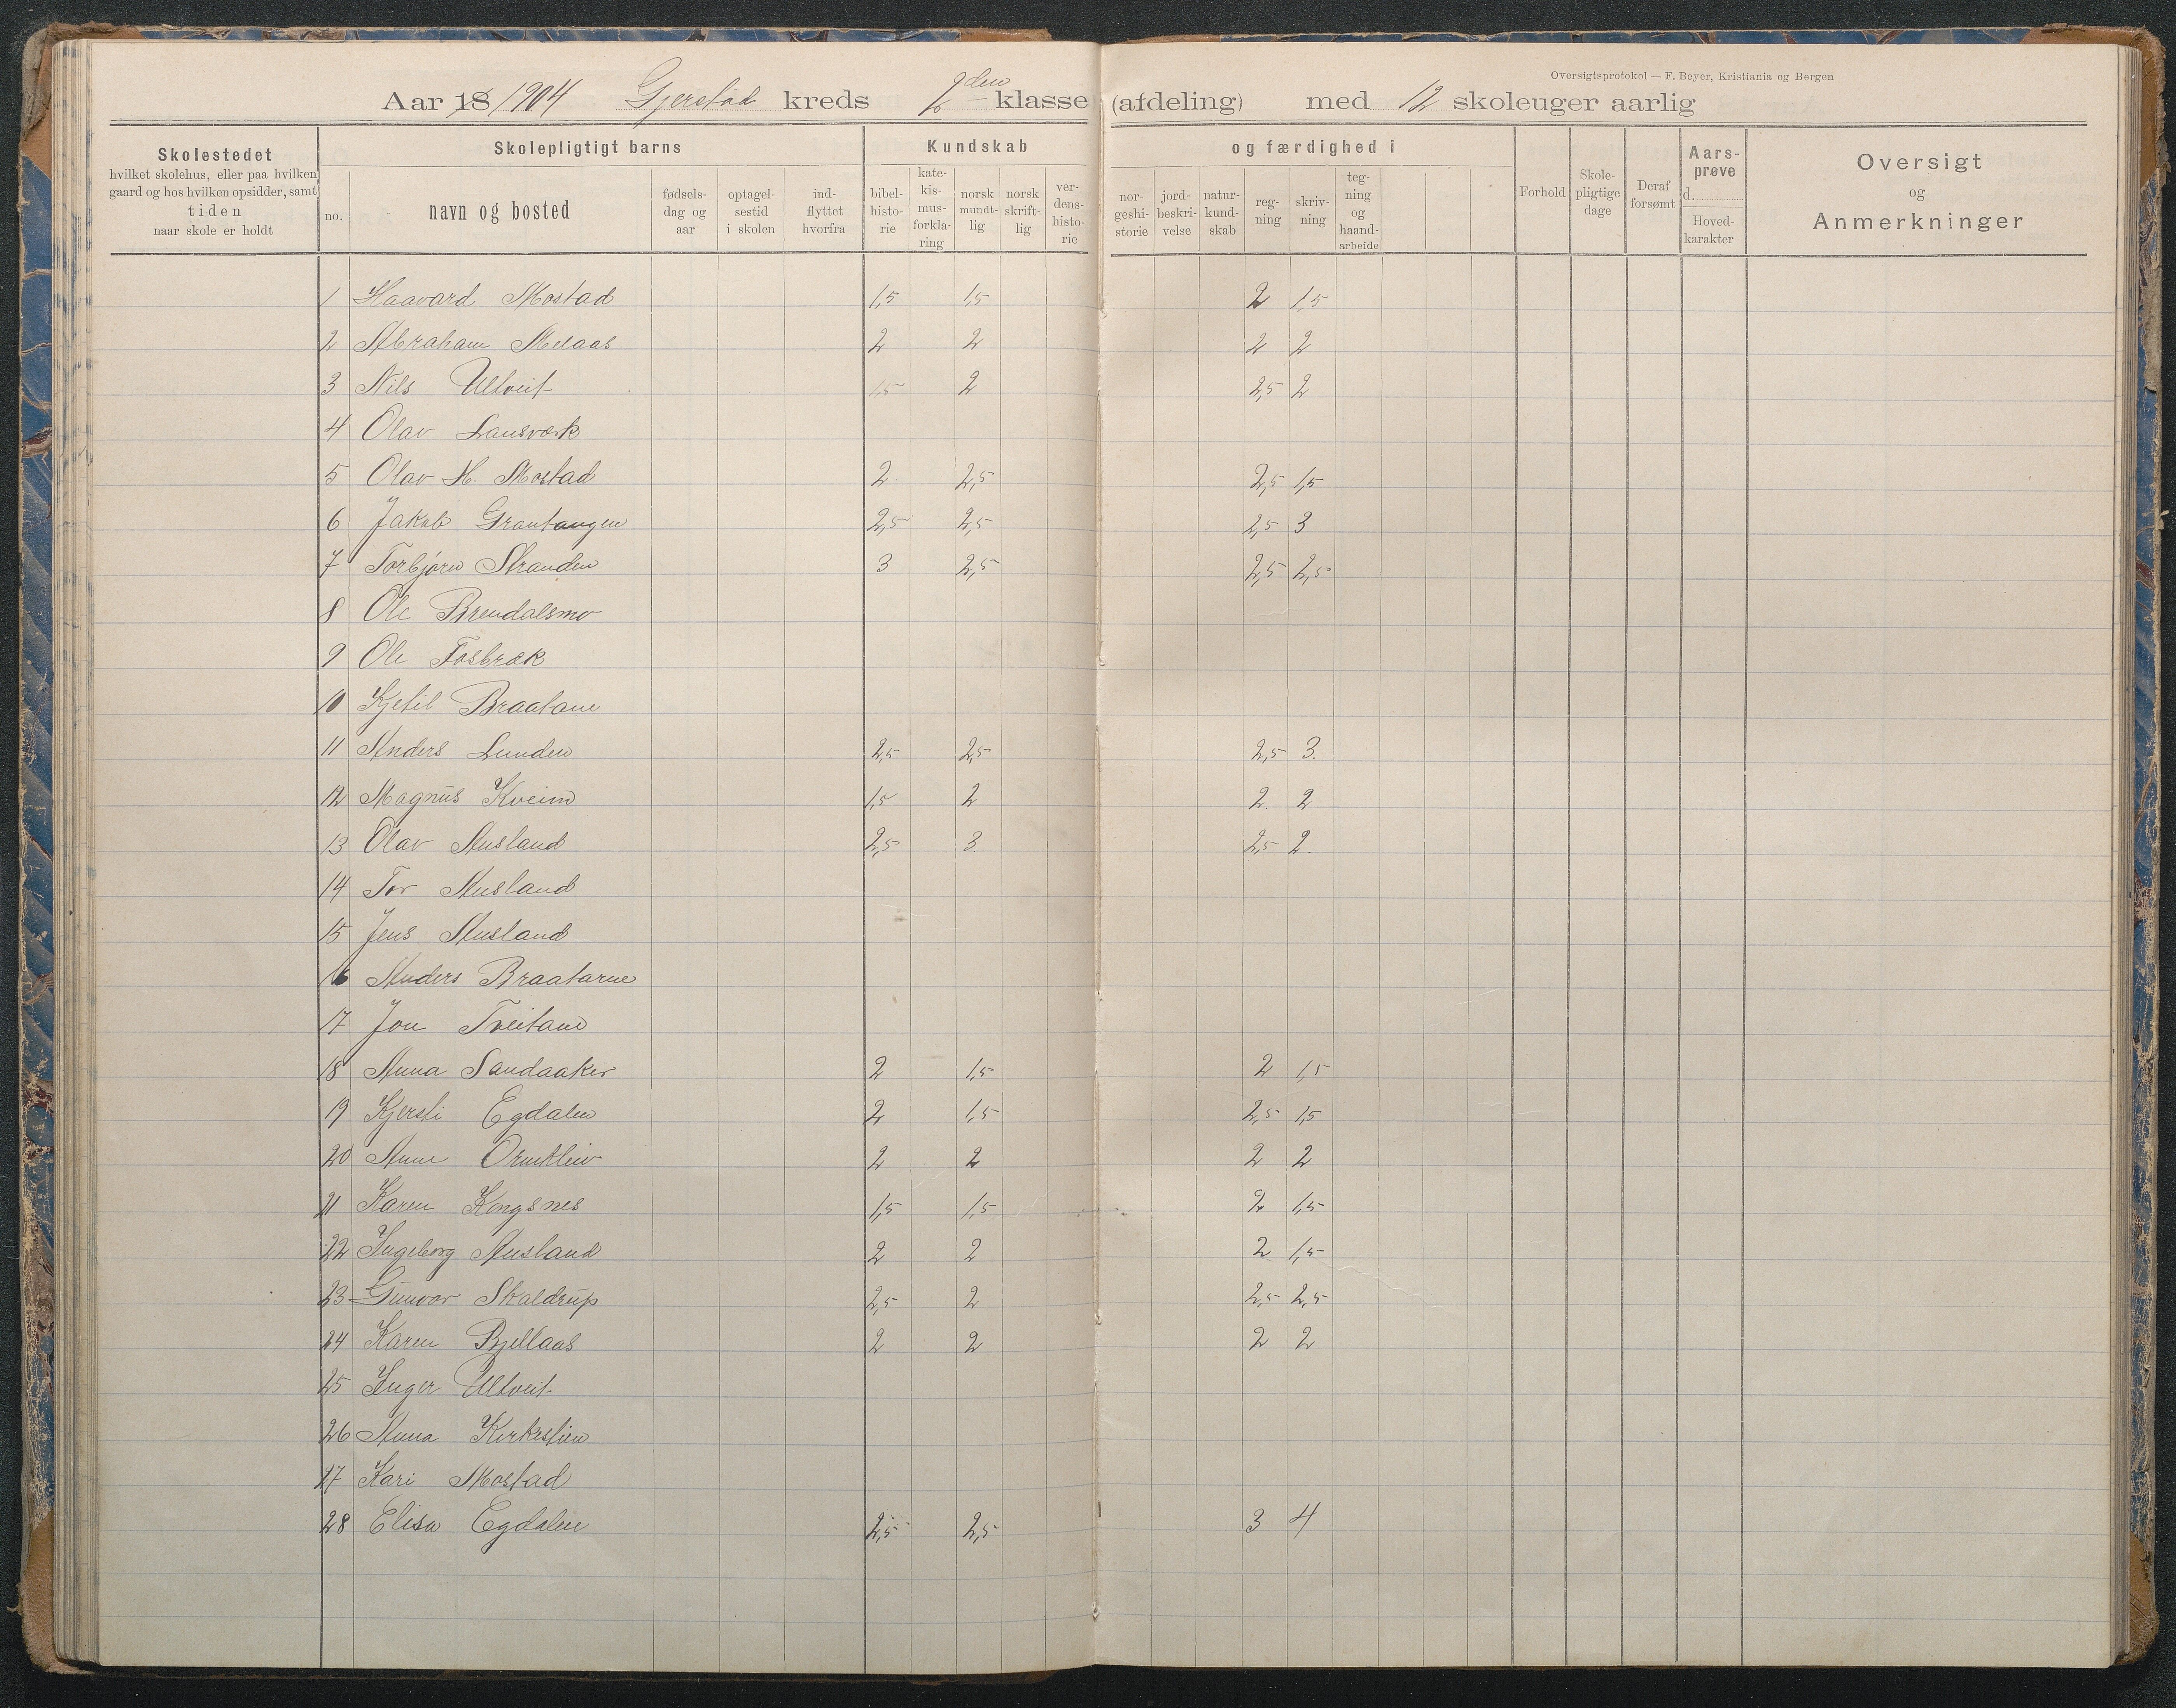 Oversigtsprotokol — F. Beyer, Kristiania og Bergen
Aar 18 1904 Gjerstad kreds 2den klasse (afdeling) med 12 skoleuger aarlig
Skolestedet
hvilket skolehus, eller paa hvilken
gaard og hos hvilken opsidder, samt
tiden
naar skole er holdt
Skolepligtigt barns
no.
navn og bosted
fødsels-
dag og
aar
optagel-
sestid
i skolen
ind-
flyttet
hvorfra
Kundskab
bibel-
histo-
rie
kate-
kis-
mus-
forkla-
ring
norsk
mundt-
lig
norsk
skrift-
lig
ver-
dens-
histo-
rie
og færdighed i
nor-
geshi-
storie
jord-
beskri-
velse
natur-
kund-
skab
reg-
ning
skriv-
ning
teg-
ning
og
haand-
arbeide
Forhold
Skole-
pligtige
dage
Deraf
forsømt
Aars-
prøve
d.
Hoved-
karakter
Oversigt
og
Anmerkninger
1 Haavard Mostad 1,5 1,5 2 1,5
2 Abraham Melaas 2 2 2 2
3 Nils Ulltveit 1,5 2 2,5 2
4 Olav Lansverk
5 Olav H. Mostad 2 2,5 2,5 1,5
6 Jakob Grantangen 2,5 2,5 2,5 3
7 Torbjørn Stranden 3 2,5 2,5 2,5
8 Ole Brendalsmo
9 Ole Fosbræk
10 Kjetil Braatane
11 Anders Lunden 2,5 2,5 2,5 3.
12 Magnus Kveim 1,5 2 2. 2
13 Olav Ausland 2,5 3 2,5 2.
14 Tor Ausland
15 Jens Ausland
16 Anders Braatarne
17 Jon Tveitane
18 Anna Sandaaker 2 1,5 2 1,5
19 Kjersti Egdalen 2 1,5 2,5 1,5
20 Anne Ormkleiv 2 2 2 2
21 Karen Kongsnes 1,5 1,5 2 1,5
22 Ingeborg Ausland 2 2 2 1,5
23 Gunvor Skaldrup 2,5 2 2,5 2,5
24 Karen Bjellaas 2 2 2 2
25 Inger Ulltveit
26 Anna Kirkestien
27 Kari Mostad
28 Elisa Egdalen 2,5 2,5 3 4